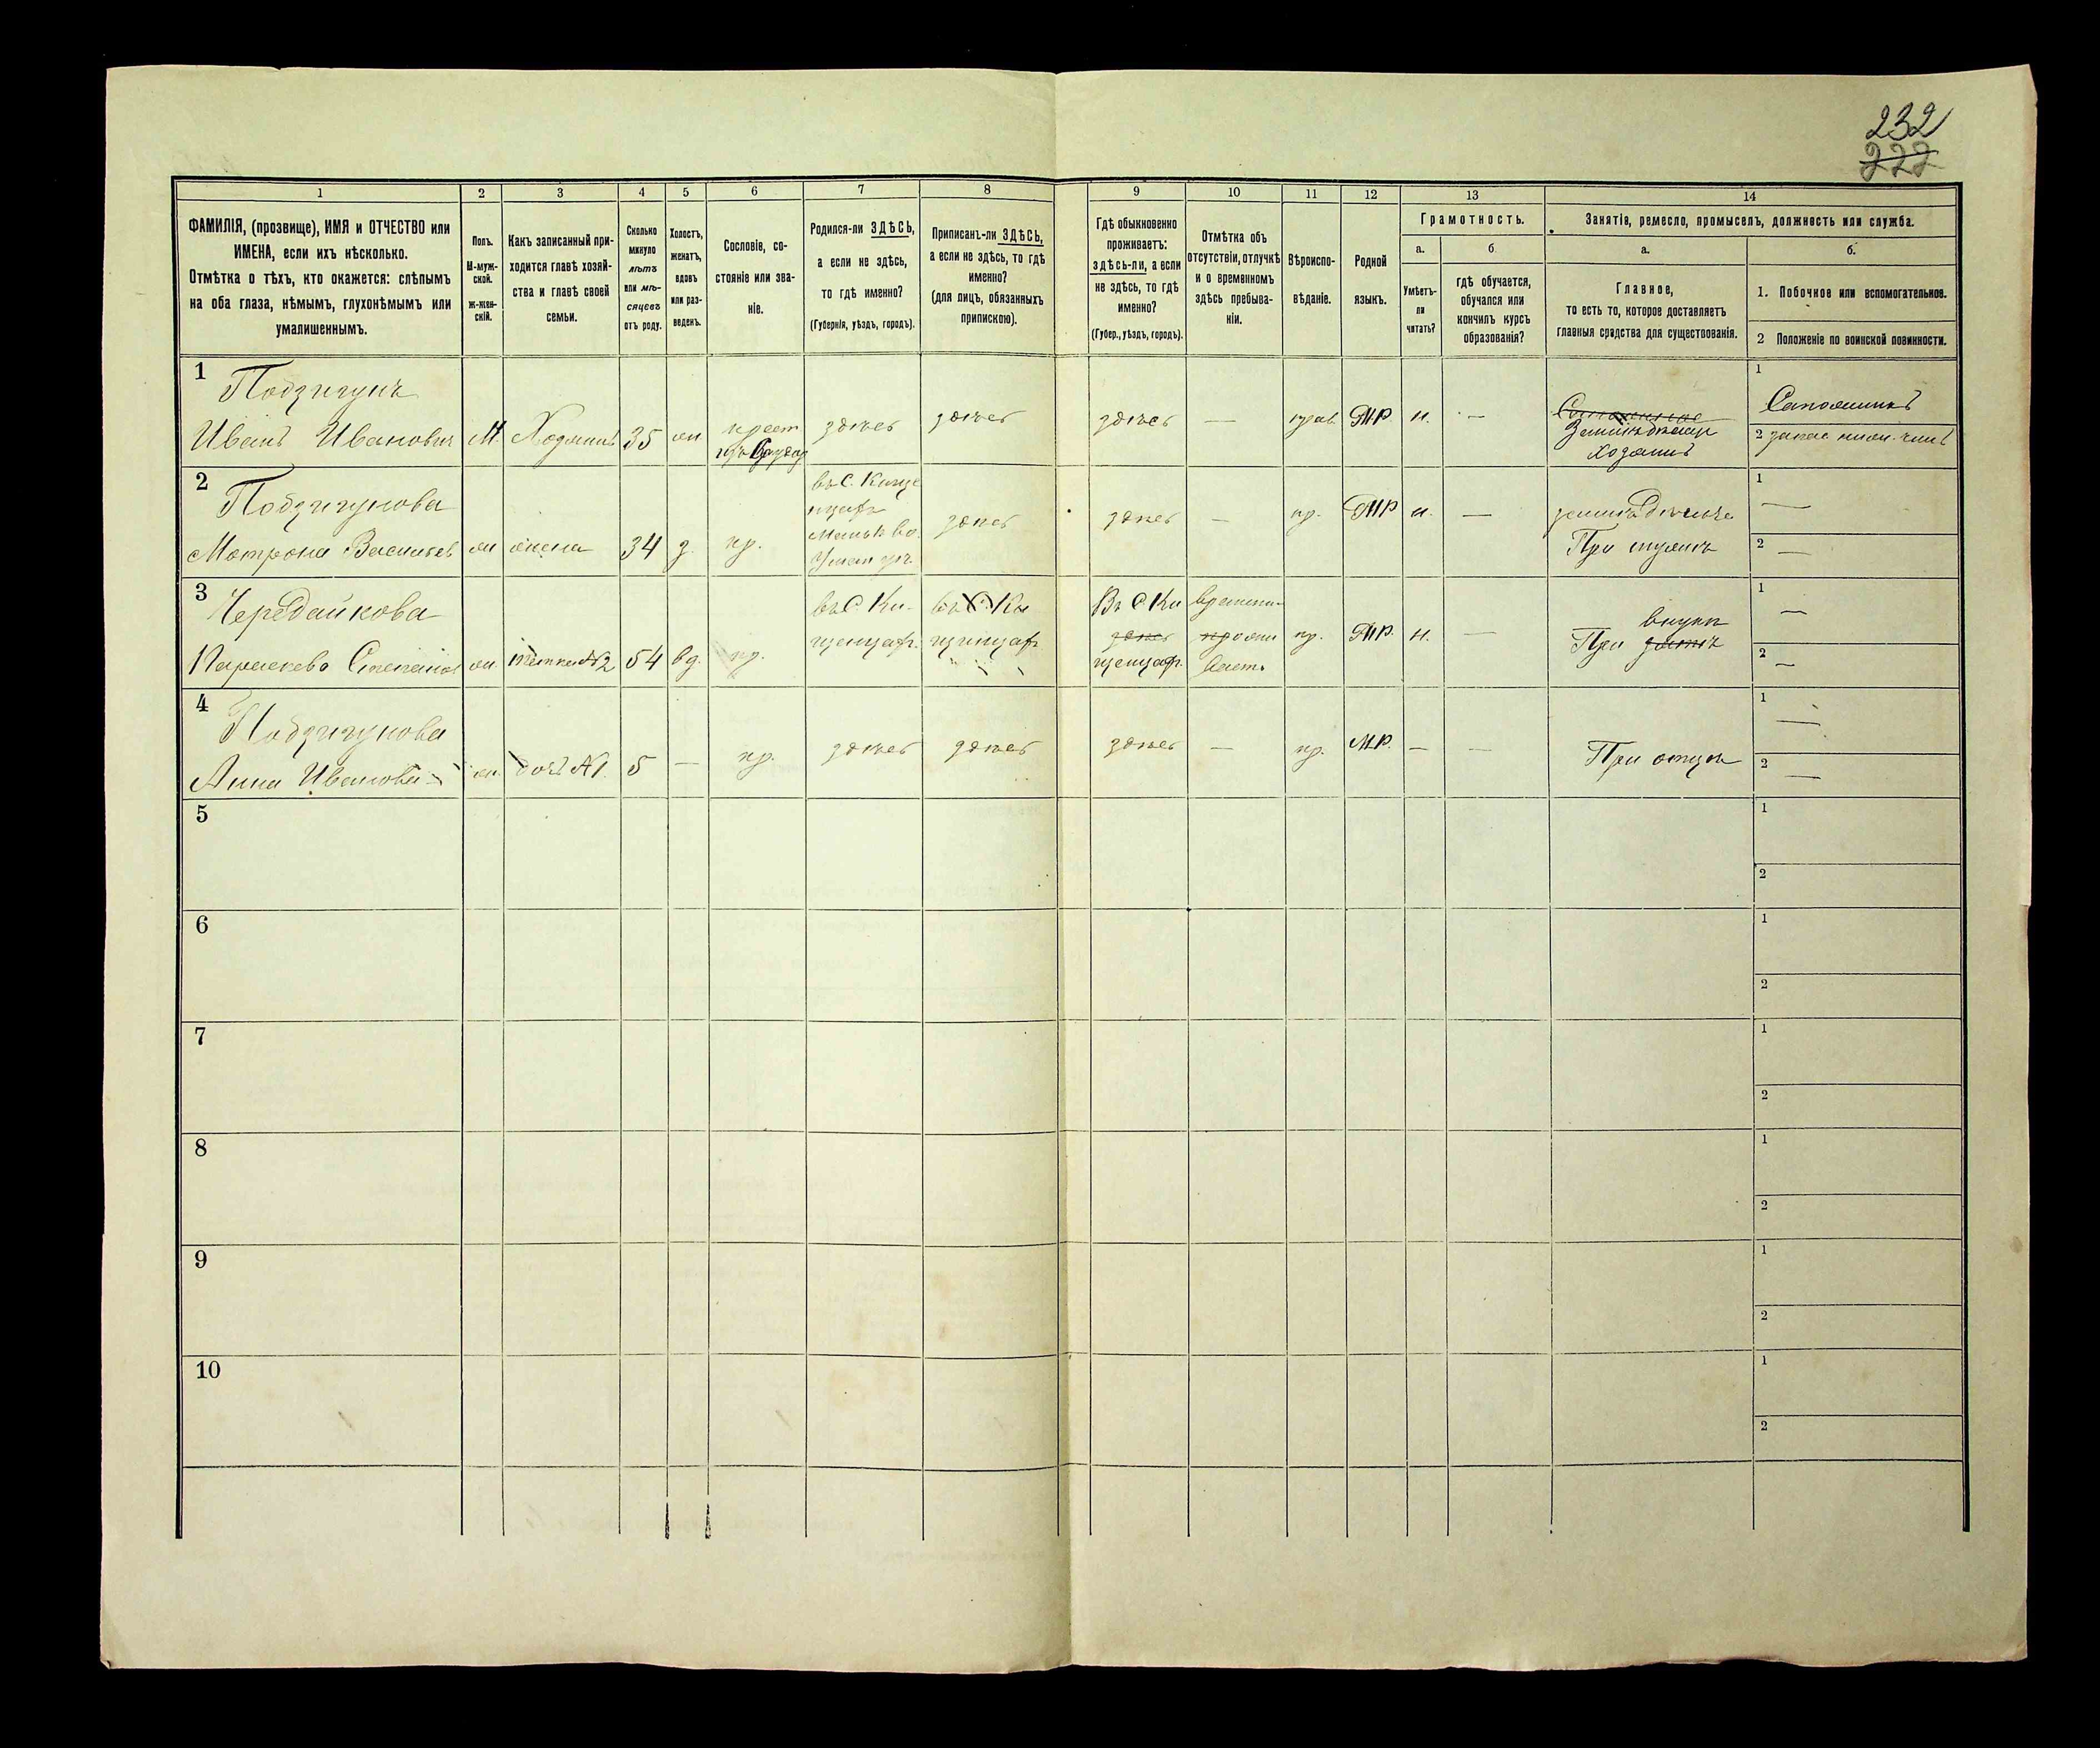 232
222
1
2
3
4
5
6
7
8
9
10
11
12
13
14
ФАМИЛІЯ, (прозвище), ИМЯ и ОТЧЕСТВО или
ИМЕНА, если ихъ нѣсколько.
Отмѣтка о тѣхъ, кто окажется: слѣпымъ
на оба глаза, нѣмымъ, глухонѣмымъ или
умалишеннымъ.
Полъ.
М-муж-
ской.
ж-жен-
скій.
Какъ записанный при-
ходится главѣ хозяй-
ства и главѣ своей
семьи.
Сколько
минуло
лѣтъ
или мѣ-
сяцевъ
отъ роду.
Холостъ,
женатъ,
вдовъ
или раз-
веденъ.
Сословіе, со-
стояніе или зва-
ніе.
Родился-ли ЗДѢСЬ,
а если не здѣсь,
то гдѣ именно?
(Губернія, уѣздъ, городъ).
Приписанъ-ли ЗДѢСЬ,
а если не здѣсь, то гдѣ
именно?
(для лицъ, обязанныхъ
припискою).
Гдѣ обыкновенно
проживаетъ:
здѣсь-ли, а если
не здѣсь, то гдѣ
именно?
(Губер., уѣздъ, городъ).
Отмѣтка объ
отсутствіи, отлучкѣ
и о временномъ
здѣсь пребыва-
ніи.
Вѣроиспо-
вѣданіе.
Родной
языкъ.
Грамотность.
а.
Умѣетъ-
ли
читать?
б
гдѣ обучается,
обучался или
кончилъ курсъ
образованія?
Занятіе, ремесло, промыселъ, должность или служба.
а.
Главное,
то есть то, которое доставляетъ
главныя средства для существованія.
б.
1. Побочное или вспомогательное.
2 Положеніе по воинской повинности.
1
Подзигунъ
Иванъ Ивановичъ
М
Хозяинъ
35
жн
крест
здѣсь
здѣсь
здѣсь
—
прав.
МР.
н.
—
Земледѣлецъ
хозяинъ
1
Сапожникъ
2 запас нижн. чинъ
2
Подзигунова
Мотрона Васильев
жн
жена
34
з.
кр.
въ С. Кище
нцахъ
Маньк во.
Уман уѣ.
здѣсь
здѣсь
—
пр.
МР
н.
—
земледѣлье
При мужѣ
1
—
2 —
3
Чередайкова
Параскева Степанов
жн.
тетка №2
54
вд.
кр.
въ С. Ки-
щенцах.
въ С. Ки
щинцах
Въ С Ки
здѣсь
щенцах.
временн
прожи
вает.
пр.
МР.
н.
—
внукѣ
При зятѣ
1
—
2
—
4
Подзигунова
Анна Иванова
жн.
дочь №1.
5
—
кр.
здѣсь
здѣсь
здѣсь
—
пр.
МР.
—
—
При отцѣ
1
—
2
—
5
1
2
6
1
2
7
1
2
8
1
2
9
1
2
10
1
2